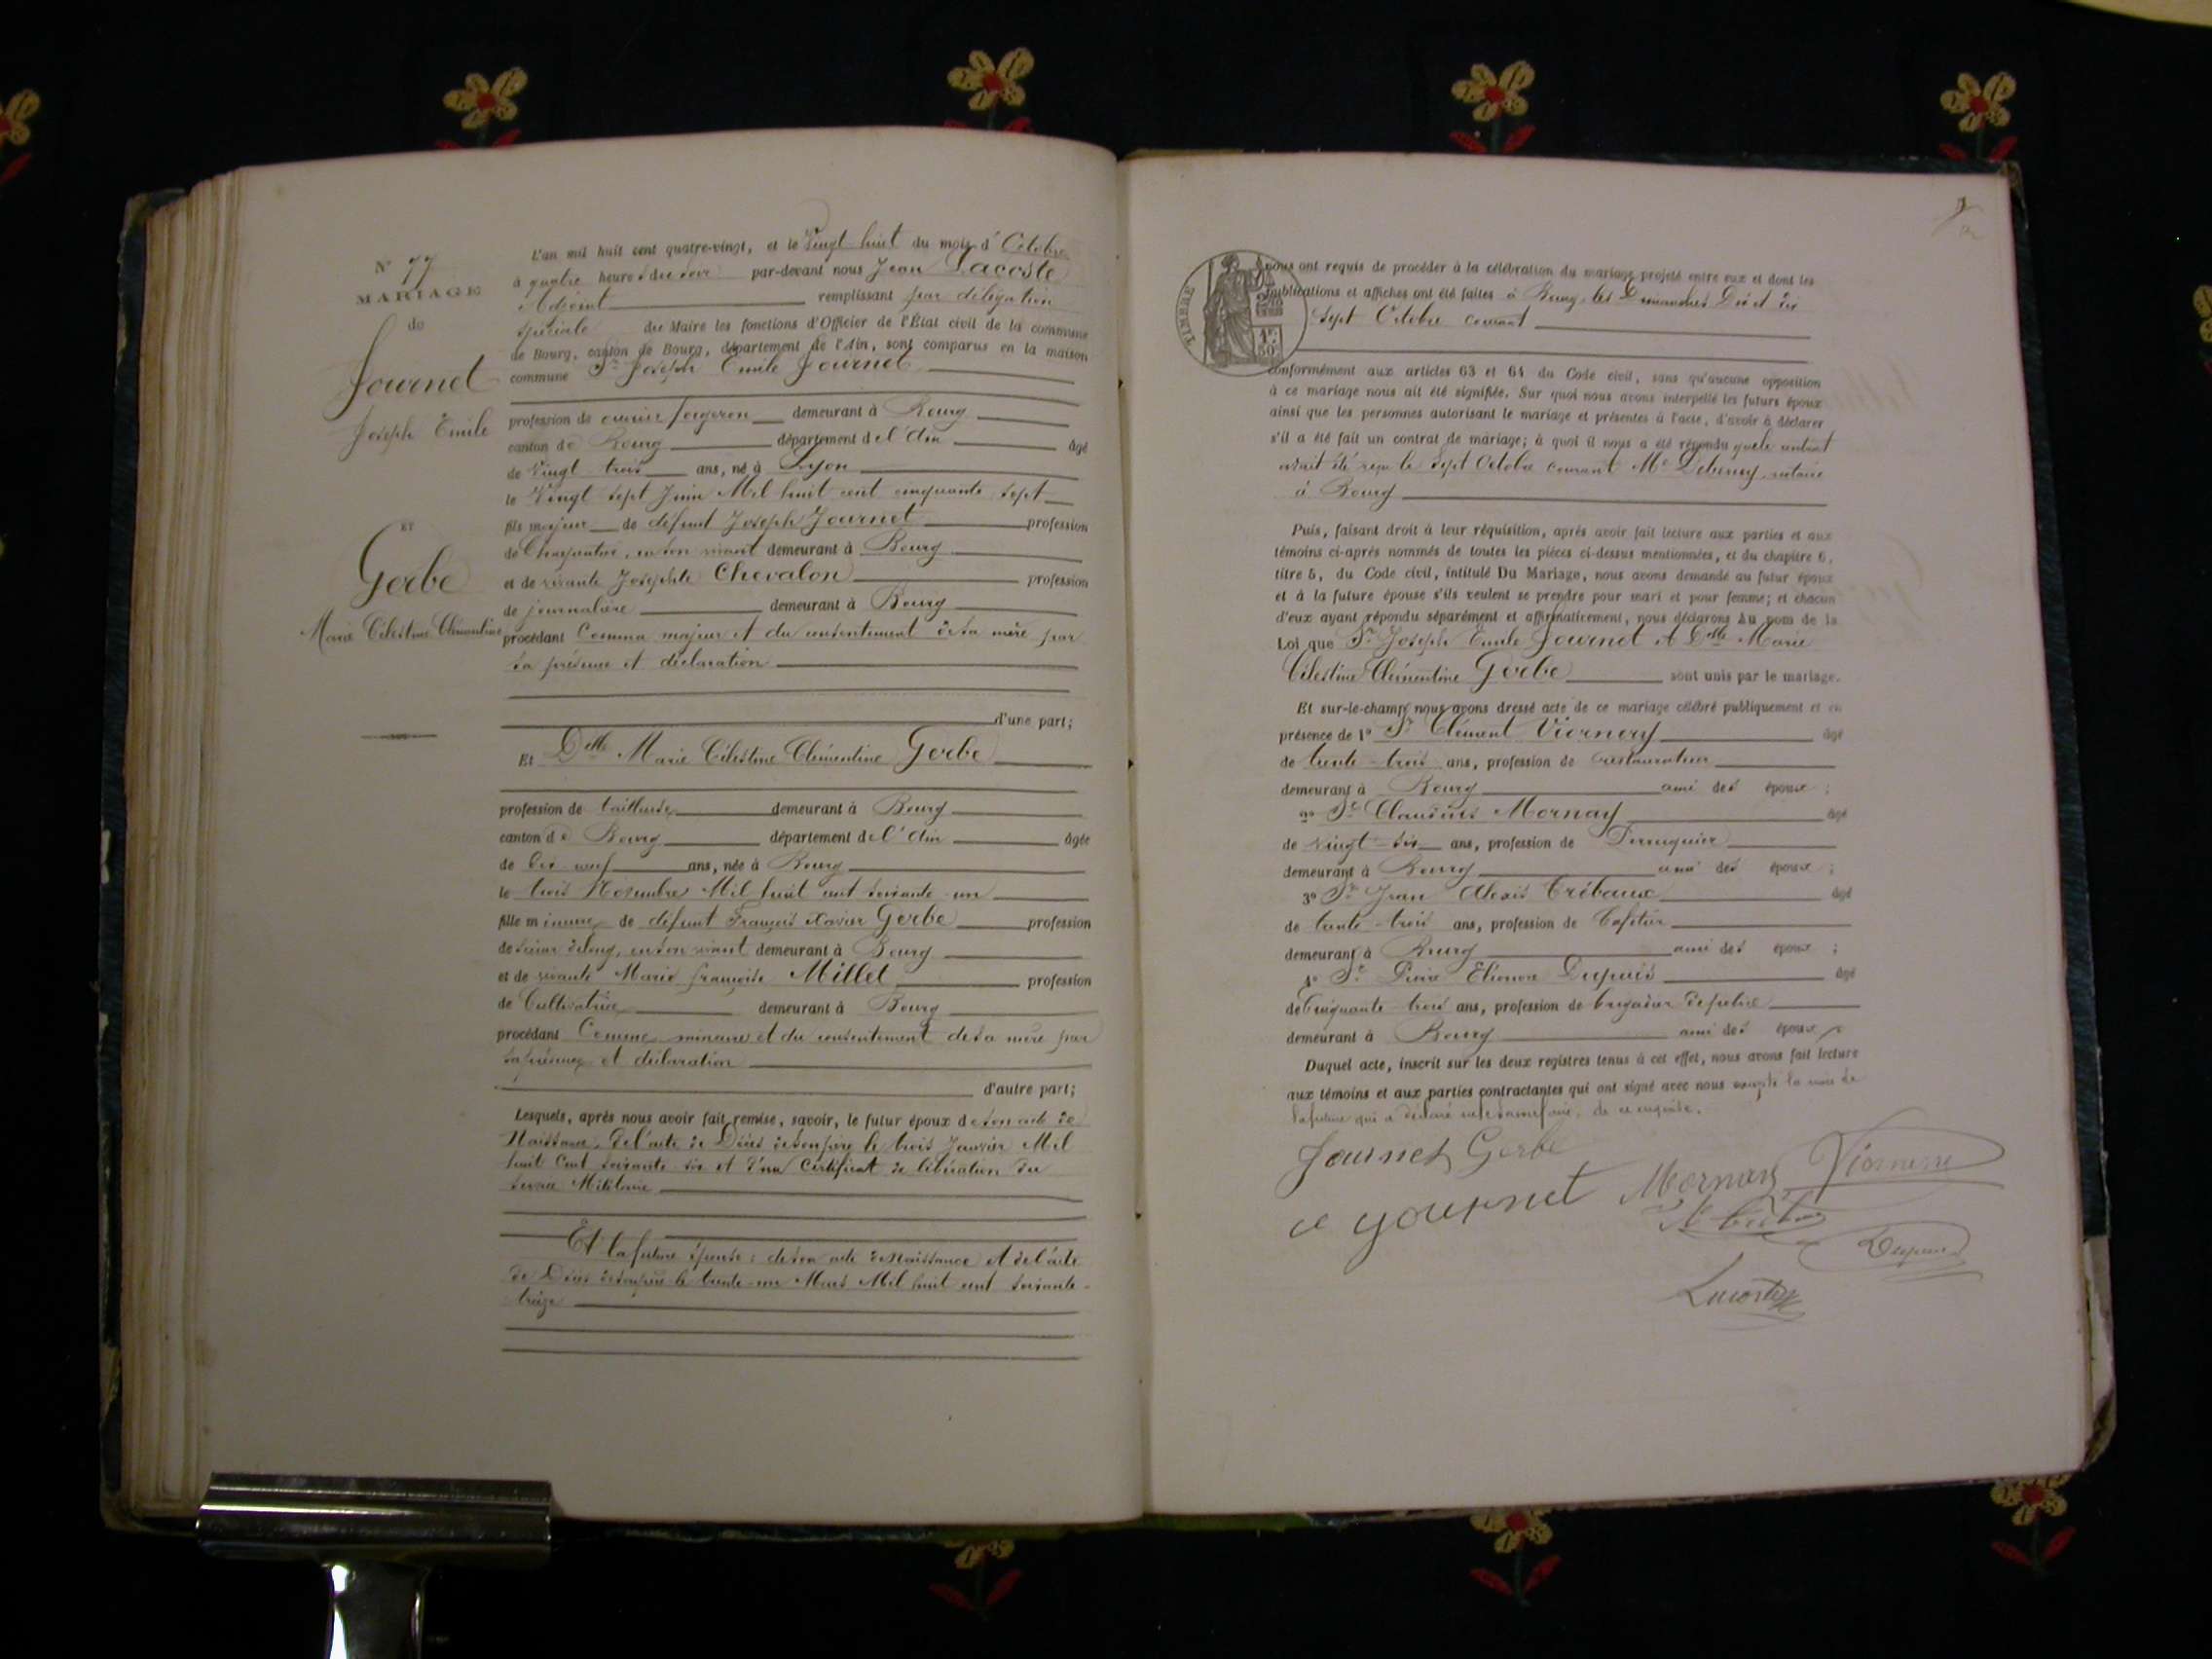 N° 77
MARIAGE
de
Journet
Joseph Emile
ET
Gerbe
Marie Célestine Clémentine
L'an mil huit cent quatre-vingt, et le Vingt huit du mois d'Octobre
à quatre heures du soir par-devant nous Jean Lacoste
Adjoint remplissant par délégation
spéciale du Maire les fonctions d'Officier de l'État civil de la commune
de Bourg, canton de Bourg, département de l'Ain, sont comparus en la maison
commune Sr Joseph Emile Journet
profession de ouvrier forgeron demeurant à Bourg
canton de Bourg département de l'Ain âgé
de Vingt trois ans, né à Lyon
le Vingt sept Juin Mil huit cent cinquante sept
fils majeur de défunt Joseph Journet profession
de Charpentier, en son vivant demeurant à Bourg
et de vivante Josephte Chevalon profession
de journalière demeurant à Bourg
procédant Comme majeur et du consentement de sa mère par
sa présence et déclaration
d'une part;
Et Delle Marie Célestine Clémentine Gerbe
profession de tailleuse demeurant à Bourg
canton de Bourg département de l'Ain âgée
de Dix neuf ans, née à Bourg
le trois Novembre Mil huit cent soixante un
fille mineure de défunt François Xavier Gerbe profession
de scieur de long, en son vivant demeurant à Bourg
et de vivante Marie Françoise Millet profession
de Cultivatrice demeurant à Bourg
procédant Comme mineure et du consentement de sa mère par
sa présence et déclaration
d'autre part;
Lesquels, après nous avoir fait remise, savoir, le futur époux de son acte de
Naissance, de l'acte de Décès de son père le trois Janvier Mil
huit Cent soixante six et d'un Certificat de libération du
service Militaire
Et la future épouse: de son acte de Naissance et de l'acte
de Décès de son père le trente-un Mars Mil huit cent soixante-
treize
TIMBRE
nous ont requis de procéder à la célébration du mariage projeté entre eux et dont les
publications et affiches ont été faites à Bourg les Dimanches Dix et dix
sept Octobre courant
conformément aux articles 63 et 64 du Code civil, sans qu'aucune opposition
à ce mariage nous ait été signifiée. Sur quoi nous avons interpellé les futurs époux
ainsi que les personnes autorisant le mariage et présentes à l'acte, d'avoir à déclarer
s'il a été fait un contrat de mariage; à quoi il nous a été répondu qu'un contrat
avait été reçu le Sept Octobre courant Me notaire
à Bourg
Puis, faisant droit à leur réquisition, après avoir fait lecture aux parties et aux
témoins ci-après nommés de toutes les pièces ci-dessus mentionnées, et du chapitre 6,
titre 5, du Code civil, intitulé Du Mariage, nous avons demandé au futur époux
et à la future épouse s'ils veulent se prendre pour mari et pour femme; et chacun
d'eux ayant répondu séparément et affirmativement, nous déclarons Au nom de la
Loi que Sr Joseph Emile Journet et Delle Marie
Célestine Clémentine Gerbe sont unis par le mariage.
Et sur-le-champ nous avons dressé acte de ce mariage célébré publiquement et en
présence de 1° Sr Clément Viornery âgé
de trente-trois ans, profession de restaurateur
demeurant à Bourg ami des époux;
2° Sr Claudius Mornay âgé
de vingt-six ans, profession de Perruquier
demeurant à Bourg ami des époux;
3° Sr Jean Alexis Crébaux âgé
de trente-trois ans, profession de Cafetier
demeurant à Bourg ami des époux;
4° Sr Pierre Eléonore Dupuis âgé
de Cinquante-trois ans, profession de brigadier de police
demeurant à Bourg ami des époux
Duquel acte, inscrit sur les deux registres tenus à cet effet, nous avons fait lecture
aux témoins et aux parties contractantes qui ont signé avec nous excepté la mère de
la future qui a déclaré ne le savoir faire, de ce enquise.
Journet Gerbe
Mornay
Journet
Dupuis
Lacoste